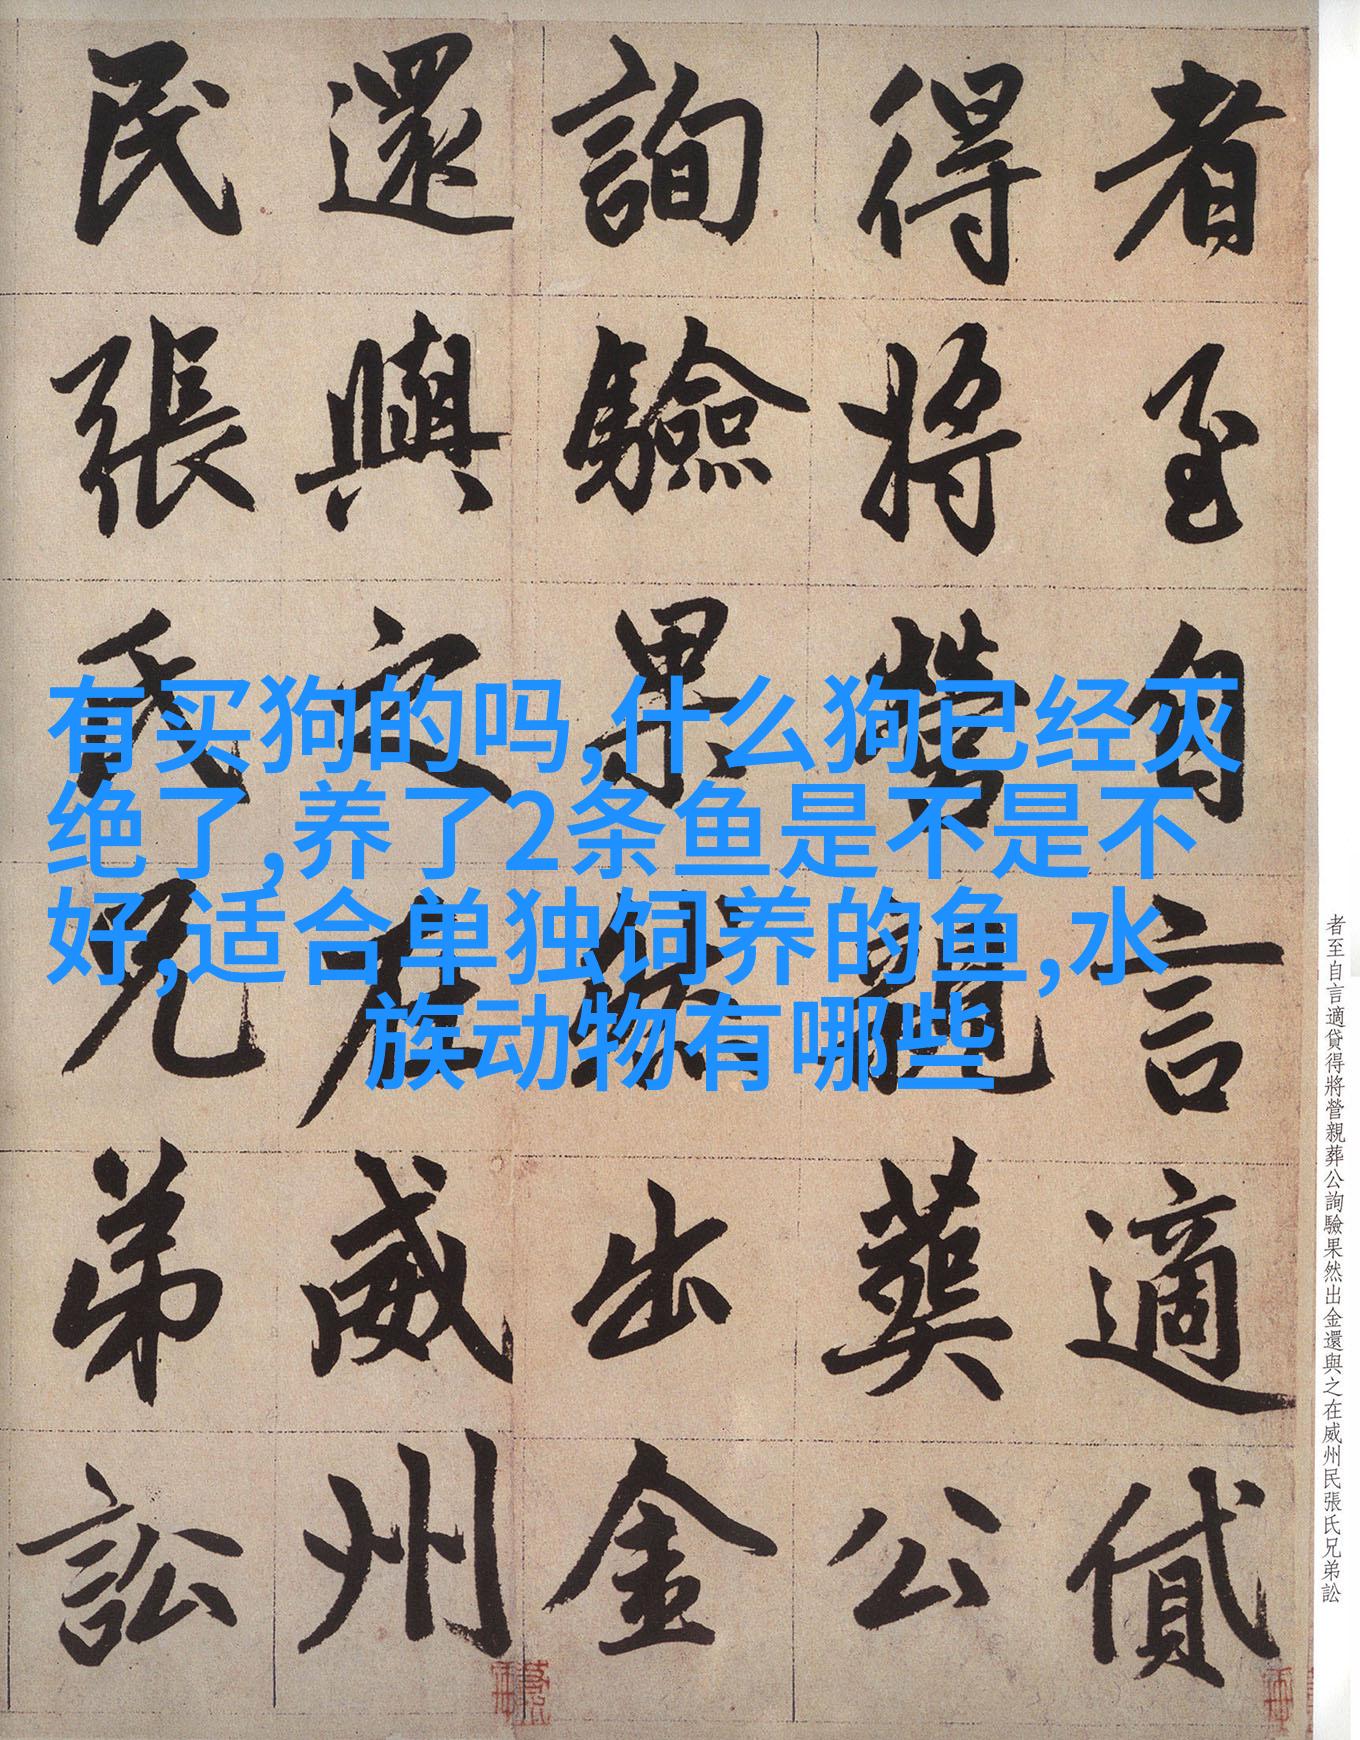 者至自言適貸
得將營親葬公
詢驗果然出金
還與之在威州
民張氏兄弟訟
有买狗的吗,什么狗已经灭
绝了,养了2条鱼是不是不
好,适合单独饲养的鱼,水
族动物有哪些
者至自言適貸得將營親葬公詢驗果然出金還與之在威州民張氏兄弟訟